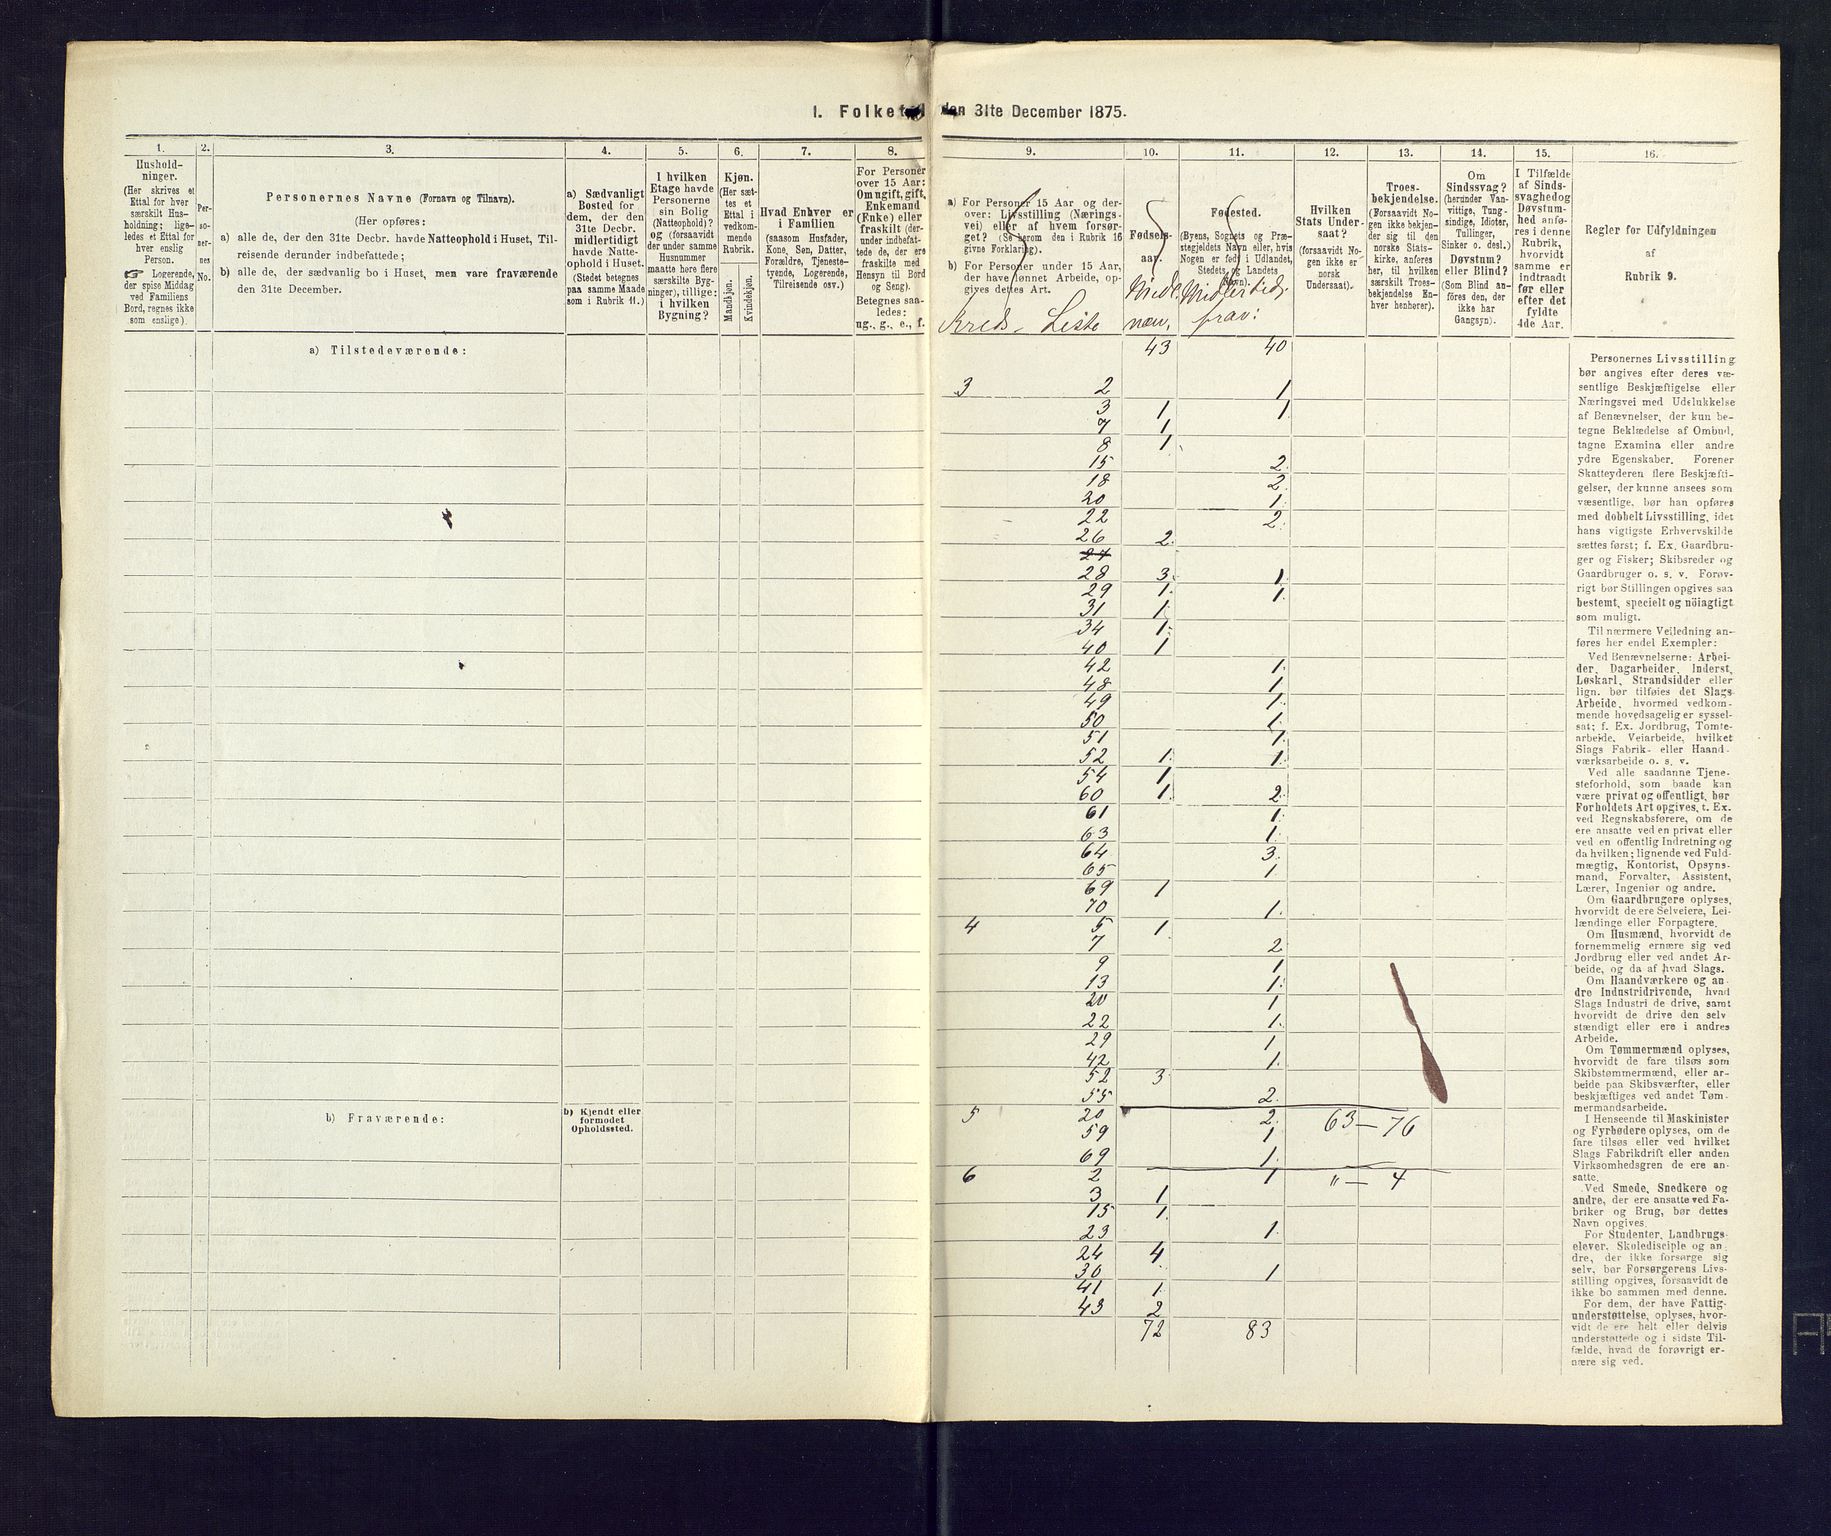 I. Folketal den 31te December 1875.
1.
Hushold-
ninger.
(Her skrives et
Ettal for hver
særskilt Hus-
holdning; lige-
ledes et Ettal for
hver enslig
Person.
☞ Logerende,
der spise Middag
ved Familiens
Bord, regnes ikke
som enslige).
2.
Per-
so-
ner-
nes
No.
3.
Personernes Navne (Fornavn og Tilnavn).
(Her opføres:
a) alle de, der den 31te Decbr. havde Natteophold i Huset, Til-
reisende derunder indbefattede;
b) alle de, der sædvanlig bo i Huset, men vare fraværende
den 31te December.
4.
a) Sædvanligt
Bosted for
dem, der den
31te Decbr.
midlertidigt
havde Natte-
ophold i Huset.
(Stedet betegnes
paa samme Maade
som i Rubrik 11.)
5.
I hvilken
Etage havde
Personerne
sin Bolig
(Natteophold)?
og (forsaavidt
der under samme
Husnummer
maatte høre flere
særskilte Byg-
ninger), tillige:
i hvilken
Bygning?
6.
Kjøn.
(Her sæt-
tes et
Ettal i
vedkom-
mende
Rubrik.
Mandkjøn.
Kvindekjøn.
7.
Hvad Enhver er
i Familien
(saasom Husfader,
Kone, Søn, Datter,
Forældre, Tjeneste-
tyende, Logerende,
Tilreisende osv.)
8.
For Personer
over 15 Aar:
Om ugift, gift,
Enkemand
(Enke) eller
fraskilt (der-
under indbefat-
tede de, der ere
fraskilte med
Hensyn til Bord
og Seng).
Betegnes saa-
ledes:
ug., g., e., f.
9.
a) For Personer 15 Aar og der-
over: Livsstilling (Nærings-
vei) eller af hvem forsør-
get? (Se herom den i Rubrik 16
givne Forklaring).
b) For Personer under 15 Aar,
der have lønnet Arbeide, op-
gives dettes Art.
Kreds- Liste
10.
Fødsels-
aar.
Midl.
nærv,
11.
Fødested.
(Byens, Sognets og Præ-
stegjeldets Navn eller, hvis
Nogen er født i Udlandet,
Stedets og Landets
Navn).
Midlertidg
frav:
12.
Hvilken
Stats Under-
saat?
(forsaavidt No-
gen ikke er
norsk
Undersaat).
13.
Troes-
bekjendelse.
(Forsaavidt No-
gen ikke bekjen-
der sig til den
norske Stats-
kirke, anføres
her, til hvilken
særskilt Troes-
bekjendelse En-
hver henhører).
14.
Om
Sindssvag?
(herunder Van-
vittige, Tung-
sindige, Idioter,
Tullinger,
Sinker o. desl.)
Døvstum?
eller Blind?
(Som Blind an-
føres den, der
ikke har
Gangsyn).
15.
I Tilfælde
af Sinds-
svaghed og
Døvstum-
hed anfø-
res i denne
Rubrik,
hvorvidt
samme er
indtraadt
før eller
efter det
fyldte
4de Aar.
16.
Regler for Udfyldningen
af
Rubrik 9.
a) Tilstedeværende:
43 40
3 2 1
3 1 1
7 1
8 1
15 2
18 2
20 1
22 2
26 2
27
28 3 1
29 1 1
31 1
34 1
40 1
42 1
48 1
49 1
50 1
51 1
52 1 1
54 1
60 1 2
61 1
63 1
64 3
65 1
69 1
70 1
4 5 1
7 2
9 1
13 1
20 1
22 1
29 1
42 1
52 3
55 2
b) Fraværende:
b) Kjendt eller
formodet
Opholdssted.
5 20 2 63 — 76
59 1
69 1
6 2 1 " — 4
3 1
15 1
23 1
24 4
30 1
41 1
43 2
72 83
Personernes Livsstilling
bør angives efter deres væ-
sentlige Beskjæftigelse eller
Næringsvei med Udelukkelse
af Benævnelser, der kun be-
tegne Beklædelse af Ombud,
tagne Examina eller andre
ydre Egenskaber. Forener
Skatteyderen flere Beskjæfti-
gelser, der kunne ansees som
væsentlige, bør han opføres
med dobbelt Livsstilling, idet
hans vigtigste Erhvervskilde
sættes først; f. Ex. Gaardbru-
ger og Fisker; Skibsreder og
Gaardbruger o. s. v. Forøv-
rigt bør Stillingen opgives saa
bestemt, specielt og nöiagtigt
som muligt.
Til nærmere Veiledning an-
føres her endel Exempler:
Ved Benævnelserne: Arbei-
der, Dagarbeider, Inderst,
Løskarl, Strandsidder eller
lign. bør tilføies det Slags
Arbeide, hvormed vedkom-
mende hovedsagelig er syssel-
sat; f. Ex. Jordbrug, Tomte-
arbeide, Veiarbeide, hvilket
Slags Fabrik- eller Haand-
værksarbeide o. s. v.
Ved alle saadanne Tjene-
steforhold, som baade kan
være privat og offentligt, bør
Forholdets Art opgives, t. Ex.
ved Regnskabsførere, om de
ere ansatte ved en privat eller
ved en offentlig Indretning og
da hvilken; lignende ved Fuld-
mægtig, Kontorist, Opsyns-
mand, Forvalter, Assistent,
Lærer, Ingeniør og andre.
Om Gaardbrugere oplyses,
hvorvidt de ere Selveiere, Lei-
lændinge eller Forpagtere.
Om Husmænd, hvorvidt de
fornemmelig ernære sig ved
Jordbrug eller ved andet Ar-
beide, og da af hvad Slags.
Om Haandværkere og an-
dre Industridrivende, hvad
Slags Industri de drive, samt
hvorvidt de drive den selv
stændigt eller ere i andres
Arbeide.
Om Tømmermænd oplyses,
hvorvidt de fare tilsøs som
Skibstømmermænd, eller ar-
beide paa Skibsværfter, eller
beskjæftiges ved andet Tøm-
mermandsarbeide.
I Henseende til Maskinister
og Fyrbødere oplyses, om de
fare tilsøs eller ved hvilket
Slags Fabrikdrift eller anden
Virksomhedsgren de ere an-
satte.
Ved Smede, Snedkere og
andre, der ere ansatte ved Fa-
briker og Brug, bør dettes
Navn opgives.
For Studenter, Landbrugs-
elever, Skoledisciple og an-
dre, der ikke forsørge sig
selv, bør Forsørgerens Livs-
stilling opgives, forsaavidt de
ikke bo sammen med denne.
For dem, der have Fattig-
understøttelse, oplyses, hvor-
vidt de ere helt eller delvis
understøttede og i sidste Til-
fælde, hvad de forøvrigt er-
nære sig ved.